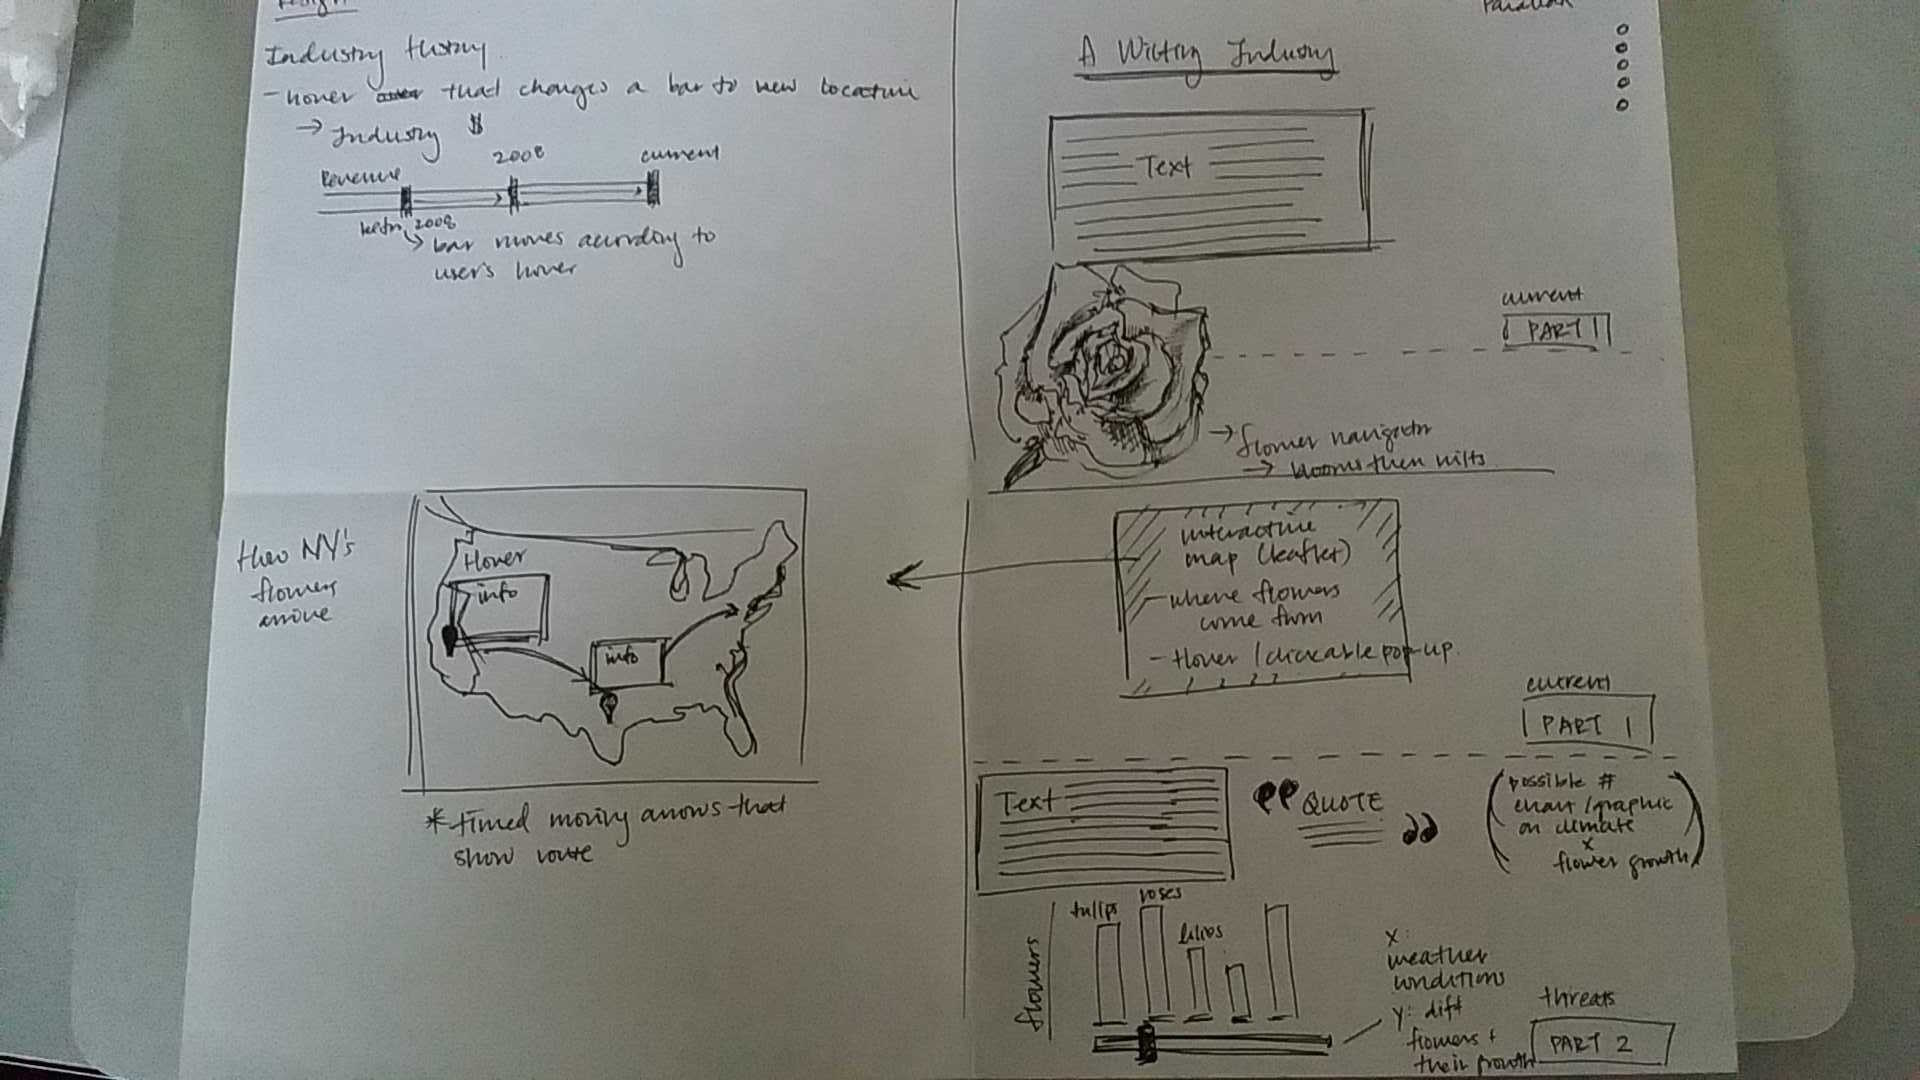 Design
Industry History
- hover that changes a bar to new location
→ Industry $
Revenue
2008
current
2008
↳ bar moves according to
user's hover
NY's
flowers
arrive
Hover
info
info
* timed moving arrows that
show route
Parallax
A Wilting Industry
Text
current
PART 1
→ flower navigator
→ blooms then wilts
interactive
map (leaflet)
- where flowers
come from
- Hover / clickable pop-up.
current
PART 1
Text
QUOTE
(possible #
chart / graphic
on climate
x
flower growth)
flowers
tulips
roses
lilies
X:
weather
conditions
Y: diff
flowers +
their growth
threats
PART 2